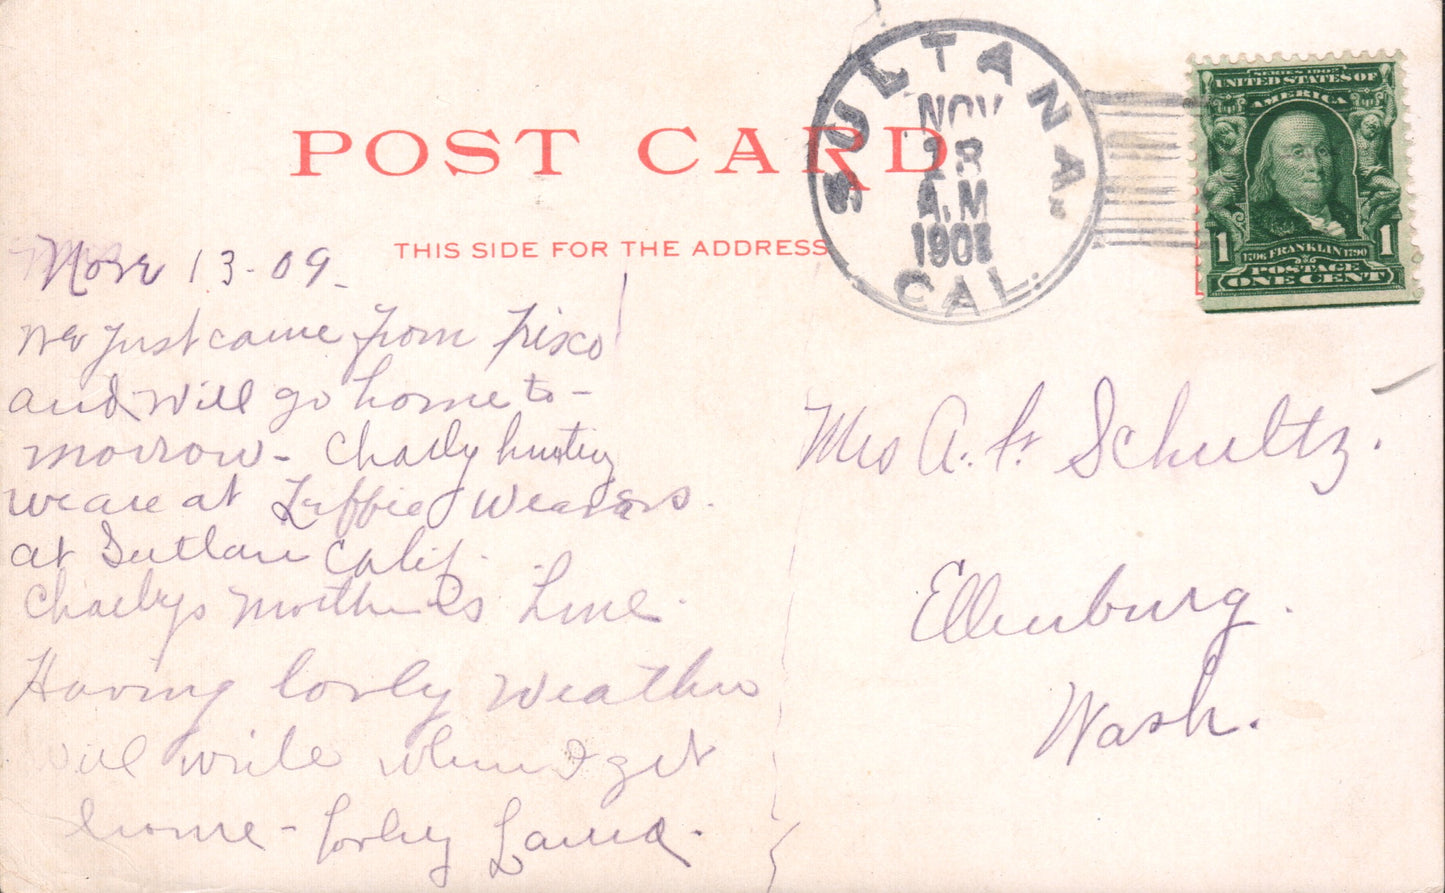 POST CARD
THIS SIDE FOR THE ADDRESS
SULTANA.
NOV
A.M
CAL.
SERIES 1902
UNITED STATES OF
AMERICA
1 1
1706 FRANKLIN 1790
POSTAGE
ONE CENT
Nov 13-09-
we just came from Frisco
and will go home to-
morrow- Charly hunting
we are at Weavers.
at Calif.
Charlys Mother is Fine.
Having lovly weather
will write when I get
home- Lovly Laura.
Mrs A. Schultz.
Ellenburg.
Wash.